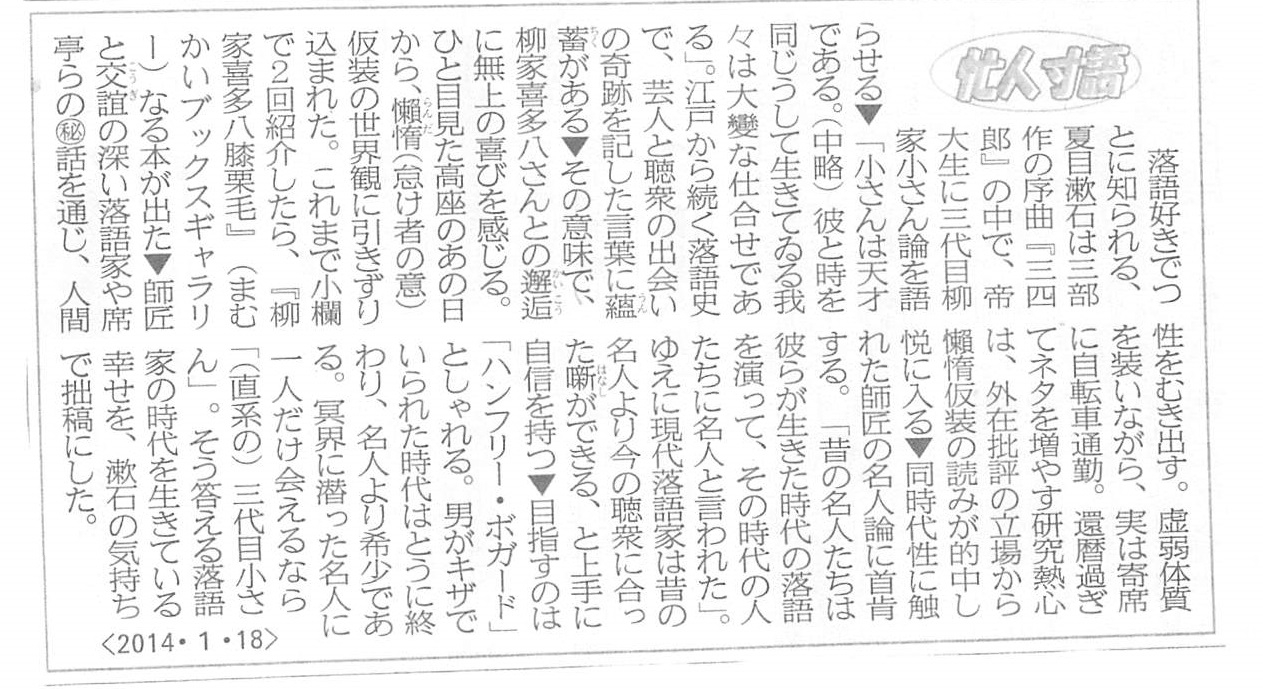 忙人寸語
落語好きでつ
とに知られる、
夏目漱石は三部
作の序曲『三四
郎』の中で、帝
大生に三代目柳
家小さん論を語
らせる▼「小さんは天才
である。（中略）彼と時を
同じうして生きてゐる我
々は大變な仕合せであ
る」。江戸から続く落語史
で、芸人と聴衆の出会い
の奇跡を記した言葉に蘊うん
蓄ちくがある▼その意味で、
柳家喜多八さんとの邂逅かいこう
に無上の喜びを感じる。
ひと目見た高座のあの日
から、懶惰らんだ（怠け者の意）
仮装の世界観に引きずり
込まれた。これまで小欄
で2回紹介したら、『柳
家喜多八膝栗毛』（まむ
かいブックスギャラリ
ー）なる本が出た▼師匠
と交誼こうぎの深い落語家や席
亭らの㊙話を通じ、人間
性をむき出す。虚弱体質
を装いながら、実は寄席
に自転車通勤。還暦過ぎ
てネタを増やす研究熱心
は、外在批評の立場から
懶惰仮装の読みが的中し
悦に入る▼同時代性に触
れた師匠の名人論に首肯
する。「昔の名人たちは
彼らが生きた時代の落語
を演って、その時代の人
たちに名人と言われた」。
ゆえに現代落語家は昔の
名人より今の聴衆に合っ
た噺はなしができる、と上手に
自信を持つ▼目指すのは
「ハンフリー・ボガード」
としゃれる。男がキザで
いられた時代はとうに終
わり、名人より希少であ
る。冥界に潜った名人に
一人だけ会えるなら
「（直系の）三代目小さ
ん」。そう答える落語
家の時代を生きている
幸せを、漱石の気持ち
で拙稿にした。
＜2014・1・18＞